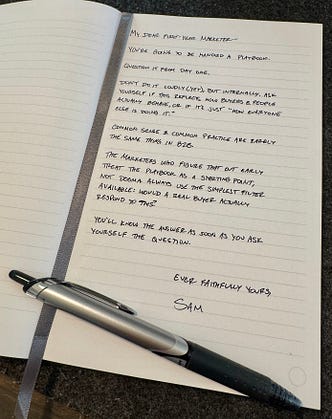 My dear first-year marketer—
You're going to be handed a playbook.
Question it from day one.
Don't do it loudly (yet), but internally, ask
yourself if this reflects how buyers & people
actually behave, or if it's just "how everyone
else is doing it."
Common sense & common practice are rarely
the same thing in B2B.
The marketers who figure that out early
treat the playbook as a starting point,
not dogma. Always use the simplest filter
available: would a real buyer actually
respond to this?
You'll know the answer as soon as you ask
yourself the question.
Ever faithfully yours,
Sam